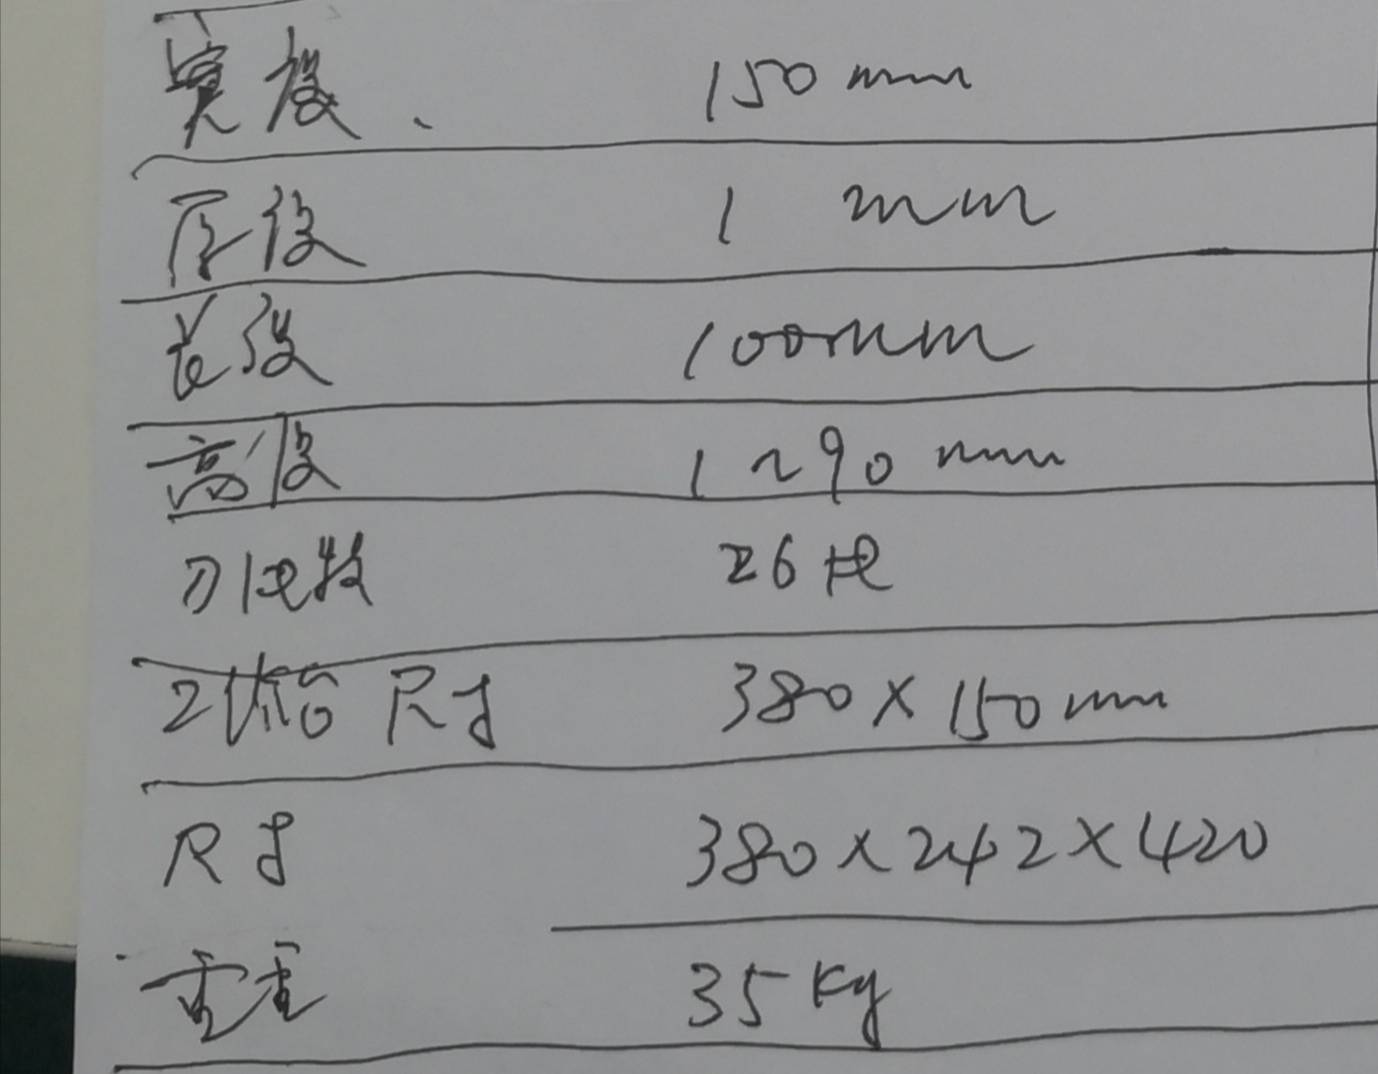 宽度、 150mm
厚度 1 mm
长度 100mm
高度 1290mm
刀把数 26把
工作台尺寸 380×150mm
尺寸 380×242×420
重量 35Kg